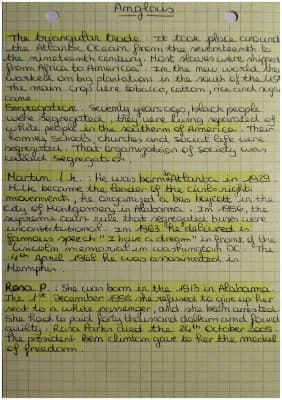 Anglais
The triangular trade. It took place around
the Atlantic Ocean from the seventeenth to
the nineteenth century. Most slaves were shipped
from Africa to America. In the new world, they
worked on big plantations in the south of the US
The main crop were tobacco, cotton, rice and sugar
cane.
Segregation. Seventy years ago, black people
were segregated, they were living separated of
white people in the southern of America. Their
homes, schools, churches and social life were
segregated. That organization of society was
called segregation.
Martin L.K. : He was born in Atlanta in 1929
M.L.K became the leader of the civil right
movements, he organized a bus boycott in the
city of Montgomery in Alabama. In 1956, the
supreme court rule that segregated buses were
unconstitutional. In 1963 he delivered is
famous speech "I have a dream" in front of the
Lincoln memorial in Washington DC. The
4th April 1968 he was assassinated in
Memphis.
Rosa P : She was born in the 1913 in Alabama.
The 1st December 1955 she refused to give up her
seat to a white passenger, and she been arrested
she had to paid forty thousand dollars and found
guilty. Rosa Parks died the 24th October 2005.
The president Ben Clinton gave to her the medal
of freedom.